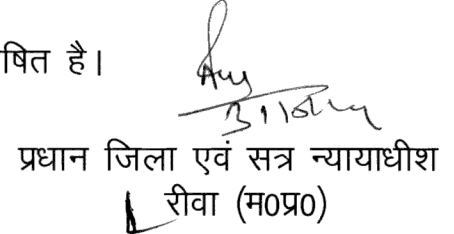 षित है।
प्रधान जिला एवं सत्र न्यायाधीश
रीवा (म0प्र0)